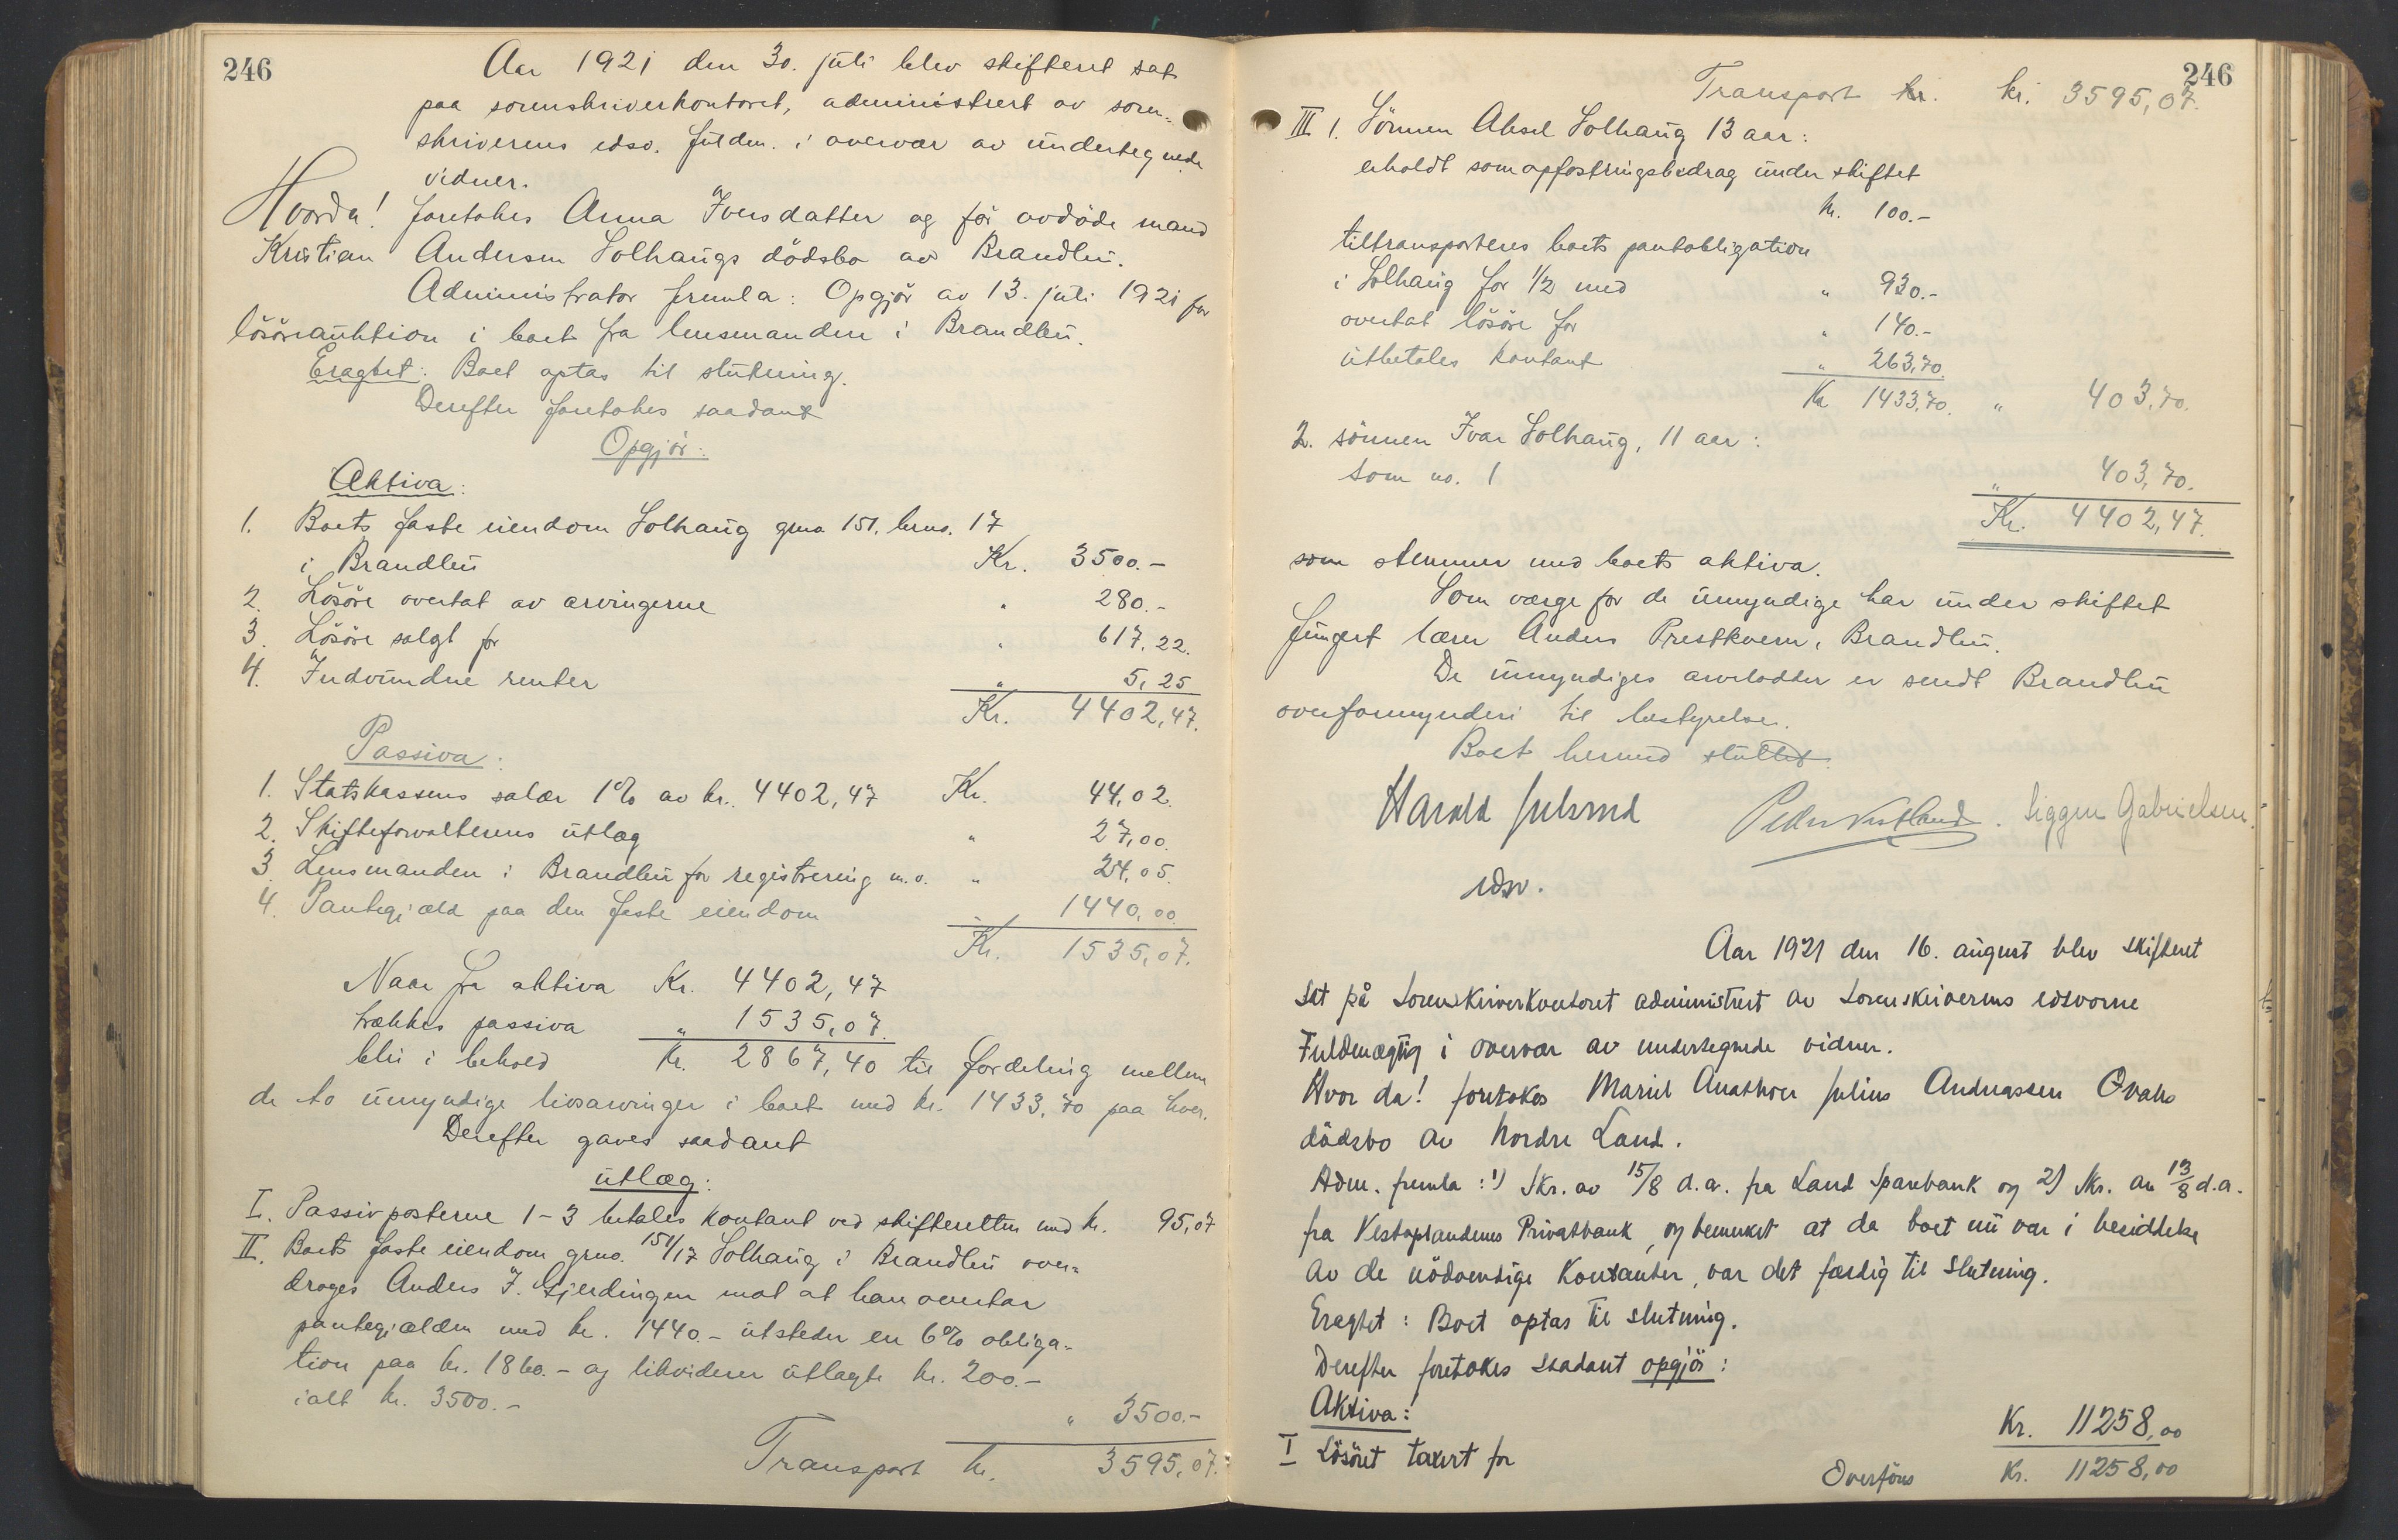 246
Aar 1921 den 30. juli blev skifteret sat
paa sorenskriverkontoret, administrert av soren-
skriverens edsv. fuldm. i overvær av undertegnede
vidner.
Hvorda! foretokes Anna Iversdatter og før avdøde mand
Kristian Andersen Solhaugs dødsbo av Brandbu.
Administrator fremla: Opgjør av 13. juli 1921 for
løsøreauktion i boet fra lensmanden i Brandbu.
Eragtet: Boet optas til slutning.
Derefter foretokes saadant
Opgjør:
Aktiva:
1. Boets faste eiendom Solhaug gno. 151. brno. 17
i Brandbu Kr. 3500.-
2. Løsøre overtat av arvingerne " 280.-
3. Løsøre solgt for " 617,22.
4. Indvundne renter " 5,25
Kr. 4402,47.
Passiva:
1. Statskassens salær 1% av kr. 4402,47 Kr. 44,02.
2. Skifteforvalterens utlæg " 27,00.
3. Lensmanden i Brandbu for registrering m.v. " 24,05.
4. Pantegjæld paa den faste eiendom " 1440,00
Kr. 1535,07.
Naar fra aktiva Kr. 4402,47
trækkes passiva " 1535,07.
blir i behold Kr. 2867,40 til fordeling mellem
de to umyndige livsarvinger i boet med kr. 1433,70 paa hver.
Derefter gaves saadant
utlæg:
I. Passivposterne 1-3 betales kontant ved skifteretten med kr. 95,07
II. Boets faste eiendom grno. 151/17 Solhaug i Brandbu over-
drages Anders I. Gjerdingen mot at han overtar
pantegjælden med kr. 1440.- utsteder en 6% obliga-
tion paa kr. 1860.- og likviderer utlagte kr. 200.-
ialt kr. 3500.- " 3500.-
Transport kr. 3595,07.
246
Transport kr. kr. 3595,07.
III 1. Sønnen Aksel Solhaug 13 aar:
erholdt som opfostringsbidrag under skiftet
kr. 100.-
tiltransporteres boets pantobligation
i Solhaug for 1/2 med " 930.-
overtat løsøre for " 140.-
utbetales kontant " 263,70.
Kr 1433,70. " 403,70.
2. sønnen Ivar Solhaug, 11 aar:
som no. 1 " 403,70.
Kr. 4402,47.
som stemmer med boets aktiva.
Som værge for de umyndige har under skiftet
fungert lærer Anders Prestkvern, Brandbu.
De umyndiges arvelodder er sendt Brandbu
overformynderi til bestyrelse.
Boet hermed sluttet.
Harald Julsrud Peder Siggen Gabrielsen.
edsv.
Aar 1921 den 16. august blev skifteret
sat på Sorenskriverkontoret administrert av Sorenskriverens edsvorne
Fuldmægtig i overvær av undertegnede vidner.
Hvor da! foretokes Mariel Anathon Julius Andreassen Ovals
dødsbo av Nordre Land.
Adm. fremla: 1) Skr. av 15/8 d.a. fra Land Sparebank og 2) Skr. av 13/8 d.a.
fra Vestoplandenes Privatbank, og bemerket at da boet nu var i besiddelse
av de nødvendige Kontanter, var det færdig til Slutning.
Eragtet: Boet optas til slutning.
Derefter foretokes saadant opgjør:
Aktiva:
I Løsøret taxert for Kr. 11258,00
Overføres Kr. 11258,00